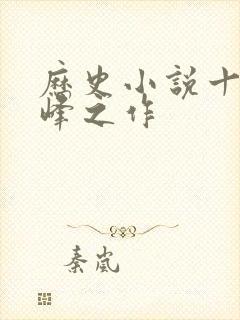 歷史小說十
峰之作
秦嵐